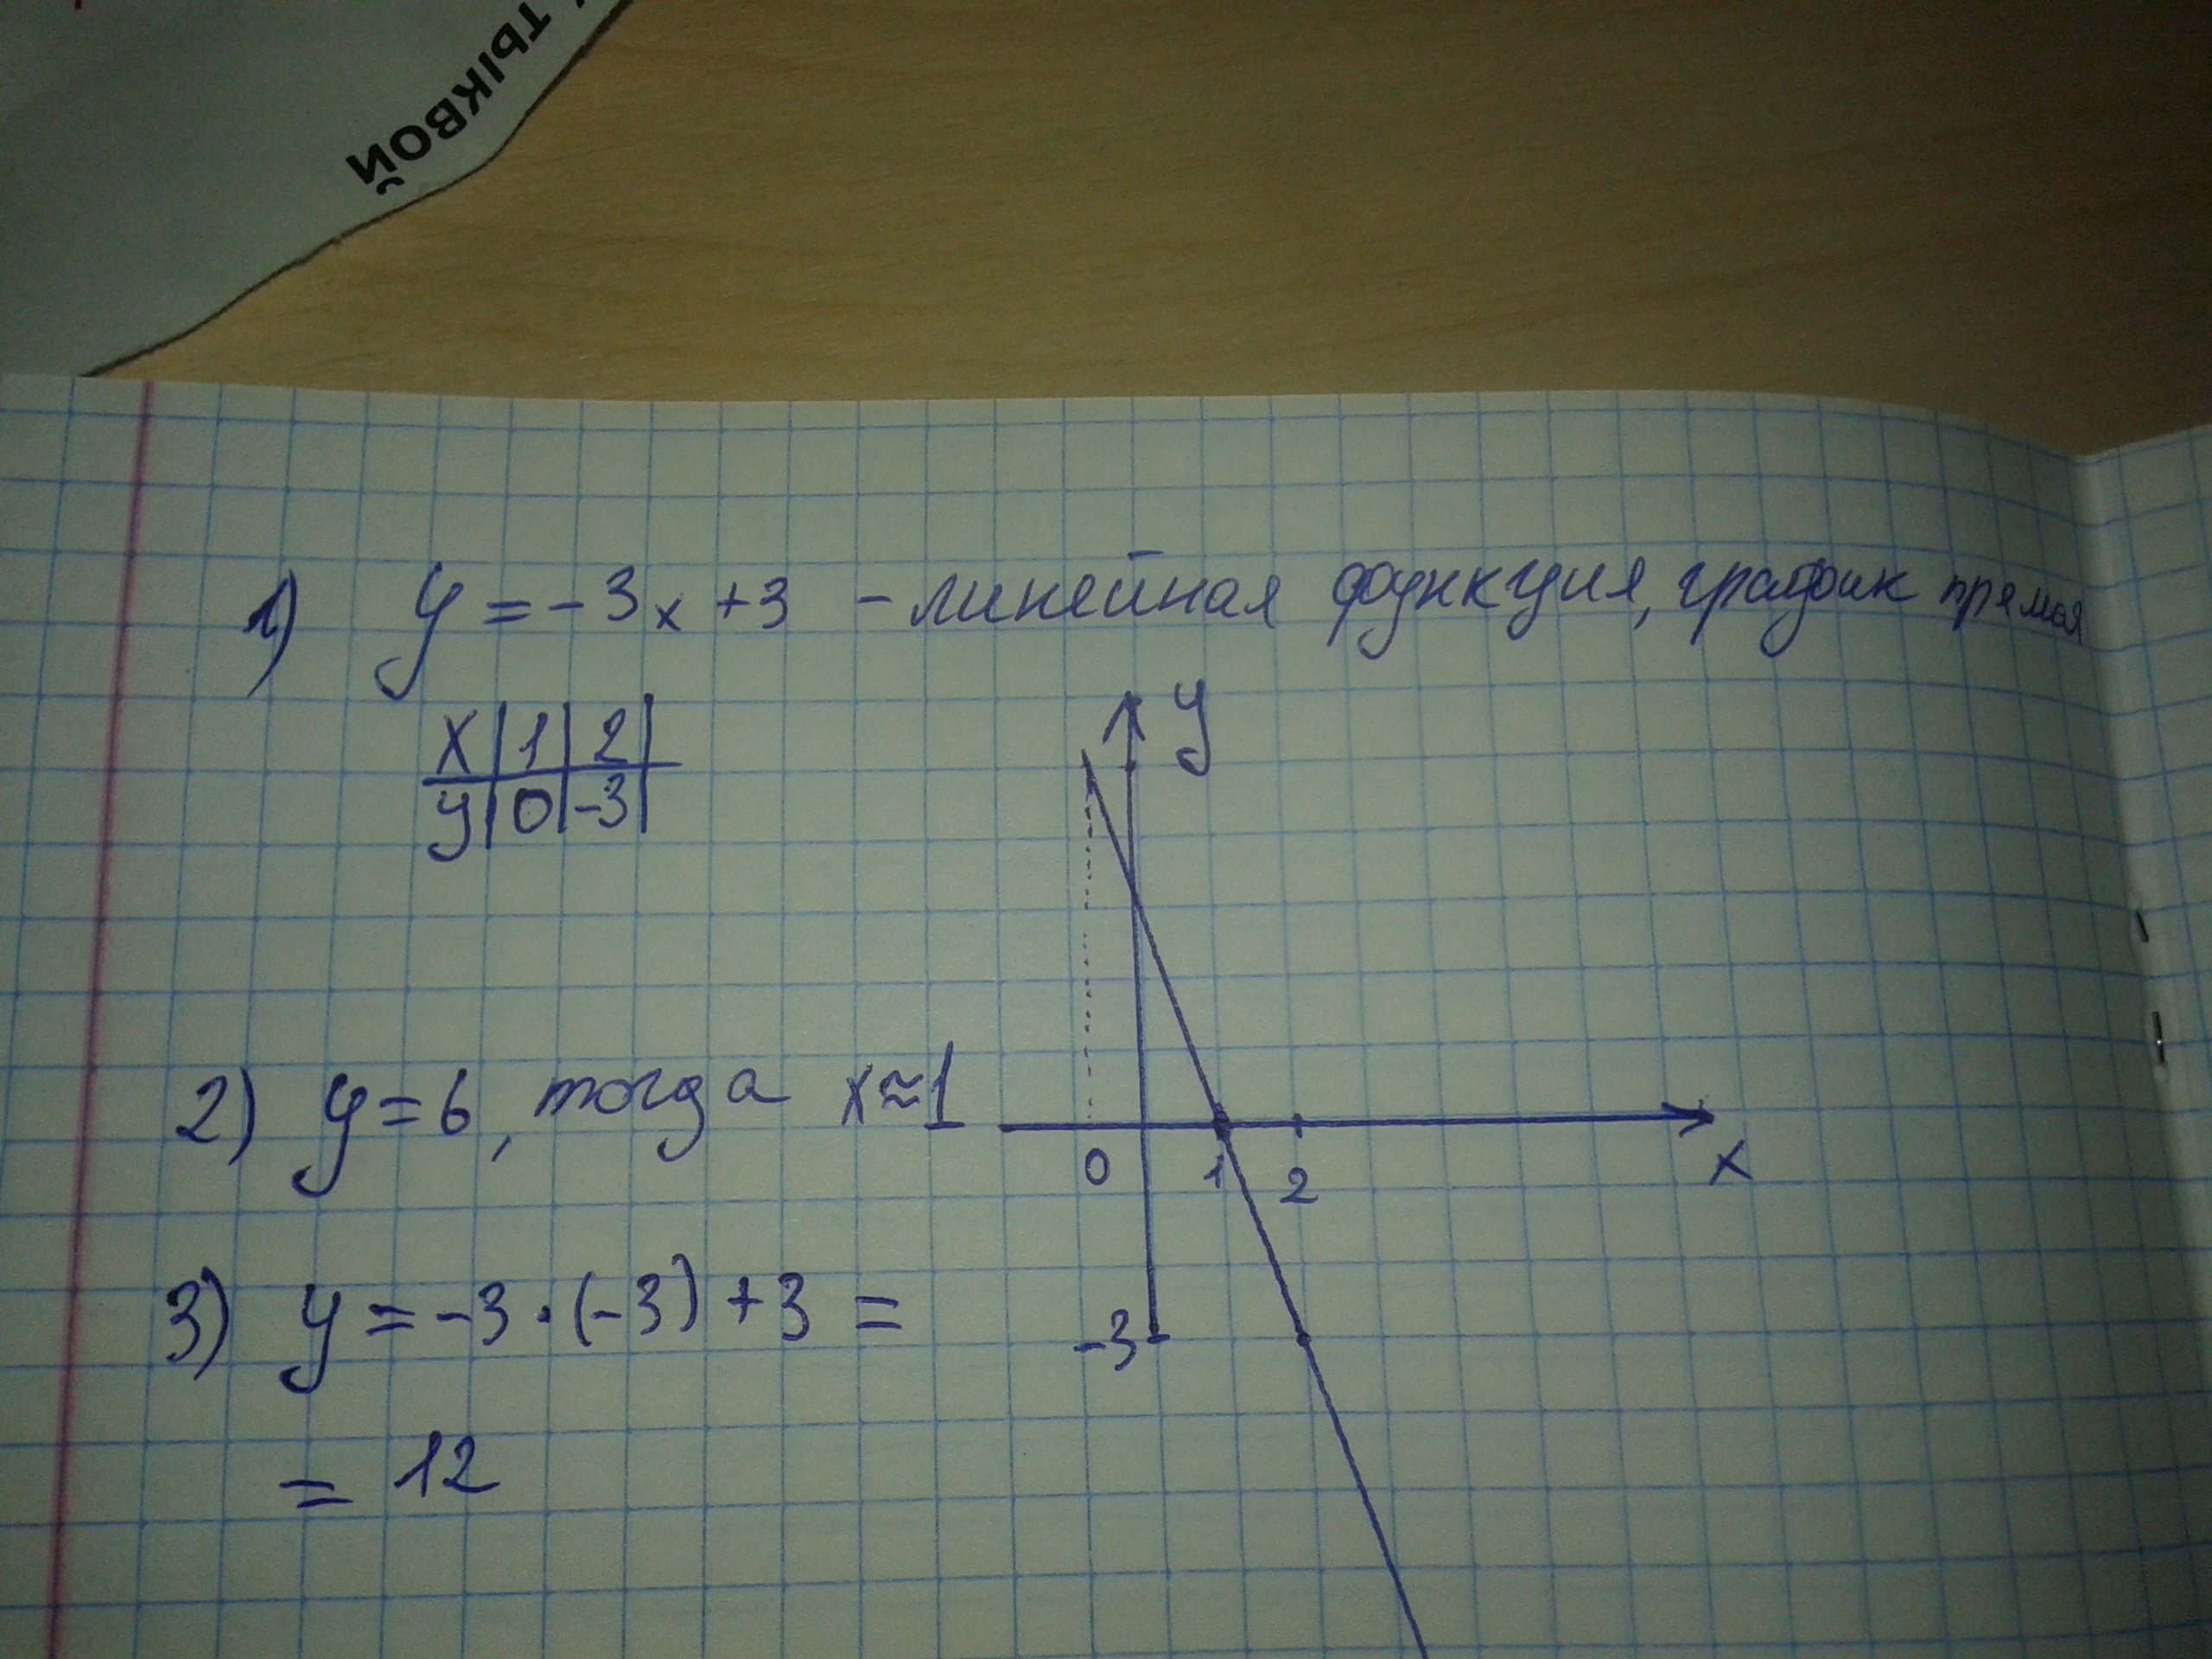 ТЫКВОЙ
1) y = -3x +3 - линейная функция, график прямая
x | 1 | 2 |
y | 0 | -3 |
y
2) y = 6, тогда x ≈ 1
0 1 2 x
3) y = -3 · (-3) + 3 =
-3
= 12